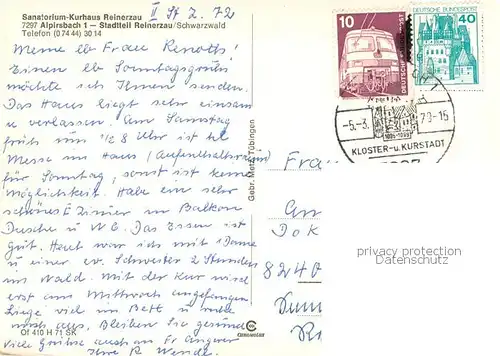 II St Z. 72
Sanatorium-Kurhaus Reinerzau
7297 Alpirsbach 1 — Stadtteil Reinerzau/Schwarzwald
Telefon (0 74 44) 30 14
Meine lb Frau Renoths!
Einen lb Sonntagsgruß
möchte ich Ihnen senden.
Das Haus liegt sehr einsam
u verlassen. Am Samstag
früh um 1/2 8 Uhr ist hl
Messe im Haus (Aufenthaltsraum)
für Sonntag, sonst ist keine
Möglichkeit. Habe ein sehr
schönes E Zimmer im Balkon
Dusche u W C. Das Essen ist
gut. Heut war ich mit 1 Dame
u einer ev. Schwester 2 Stunden
im Wald. Mit der Kur wird
erst am Mittwoch angefangen
Liege viel im Bett u ruhe
mich aus, Bleiben Sie gesund
viele Grüße auch an Fr
Ihre R. Wende
Of 410 H 71 SK
Gebr. Metz, Tübingen
10
DEUTSCHE BUNDESPOST
DEUTSCHE BUNDESPOST
40
-5.-3. 79-15
KLOSTER-u.KURSTADT
7297
Frau
An
Dok
8240
privacy protection
Datenschutz